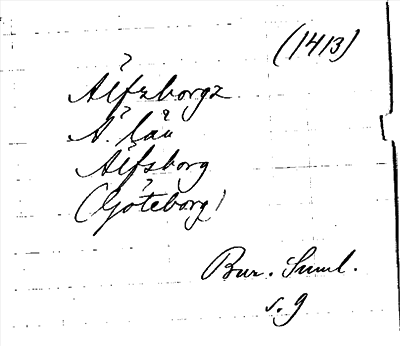 (1413)
Älfzborgz
Ä. län
Älfsborg
(Göteborg)
Bur. Suml.
s. 9